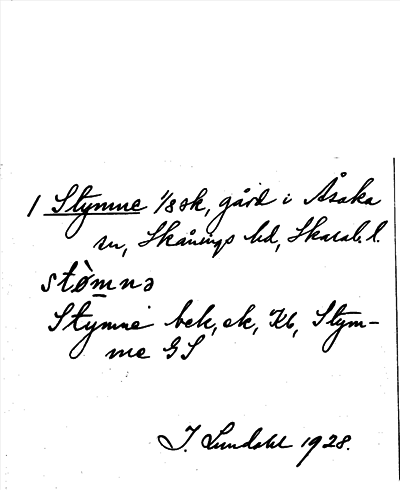 1 Stymne 1/8 sk, gård i Åsaka
sn, Skånings hd, Skarab. l.
stø̀mnə
Stymne bek, ek, Kb, Stym-
me GS
I. Lundahl 1928.